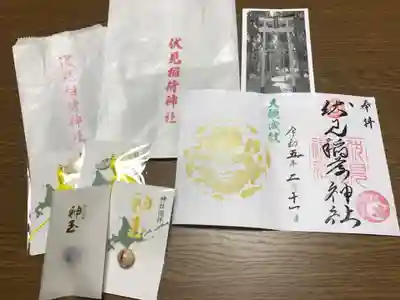 伏見稲荷神社
伏見稲荷神社
奉拝
伏見稲荷神社
大願成就
令和五年二月十一日
神玉
神玉
神社巡拝